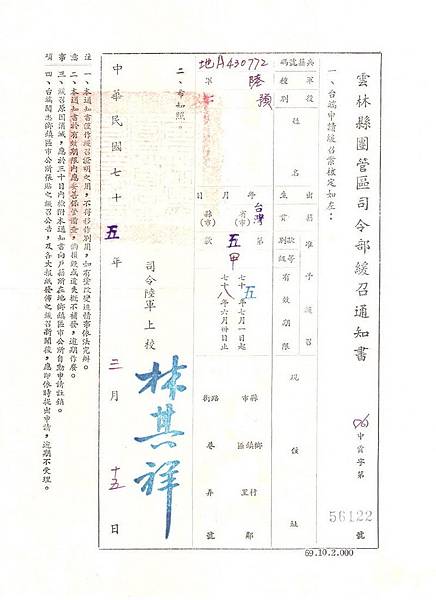 雲林縣團管區司令部緩召通知書
(76)中雲字第
56122
號
一、台端申請緩召業核定如左：
兵籍號碼
地A430772
軍種
陸
役別
預
姓名
出生
年
月
日
籍貫
台灣
省(市)
縣(市)
准予緩召
款等級別
第
五
款
甲
有效期限
七十五年七月一日起
七十八年六月卅日止
現住址
縣市
鄉鎮區
村里
鄰
路街
巷
弄
號
二、希知照。
司令陸軍上校
林其祥
中華民國七十五年三月十五日
注意事項
一、本通知書僅作緩召證明之用，不得移作別用，如有塗改變造情事依法究辦。
二、本通知書於有效期限內應妥善保管備查，如損毀或遺失概不補發，逾期作廢。
三、緩召原因消滅，應於三十日內檢附本通知書向戶籍所在地鄉鎮區市公所自動申請註銷。
四、台端閱悉鄉鎮區市公所張貼之緩召公告，及各大報紙發佈之緩召新聞後，應即依時提出申請，逾期不受理。
69.10.2.000